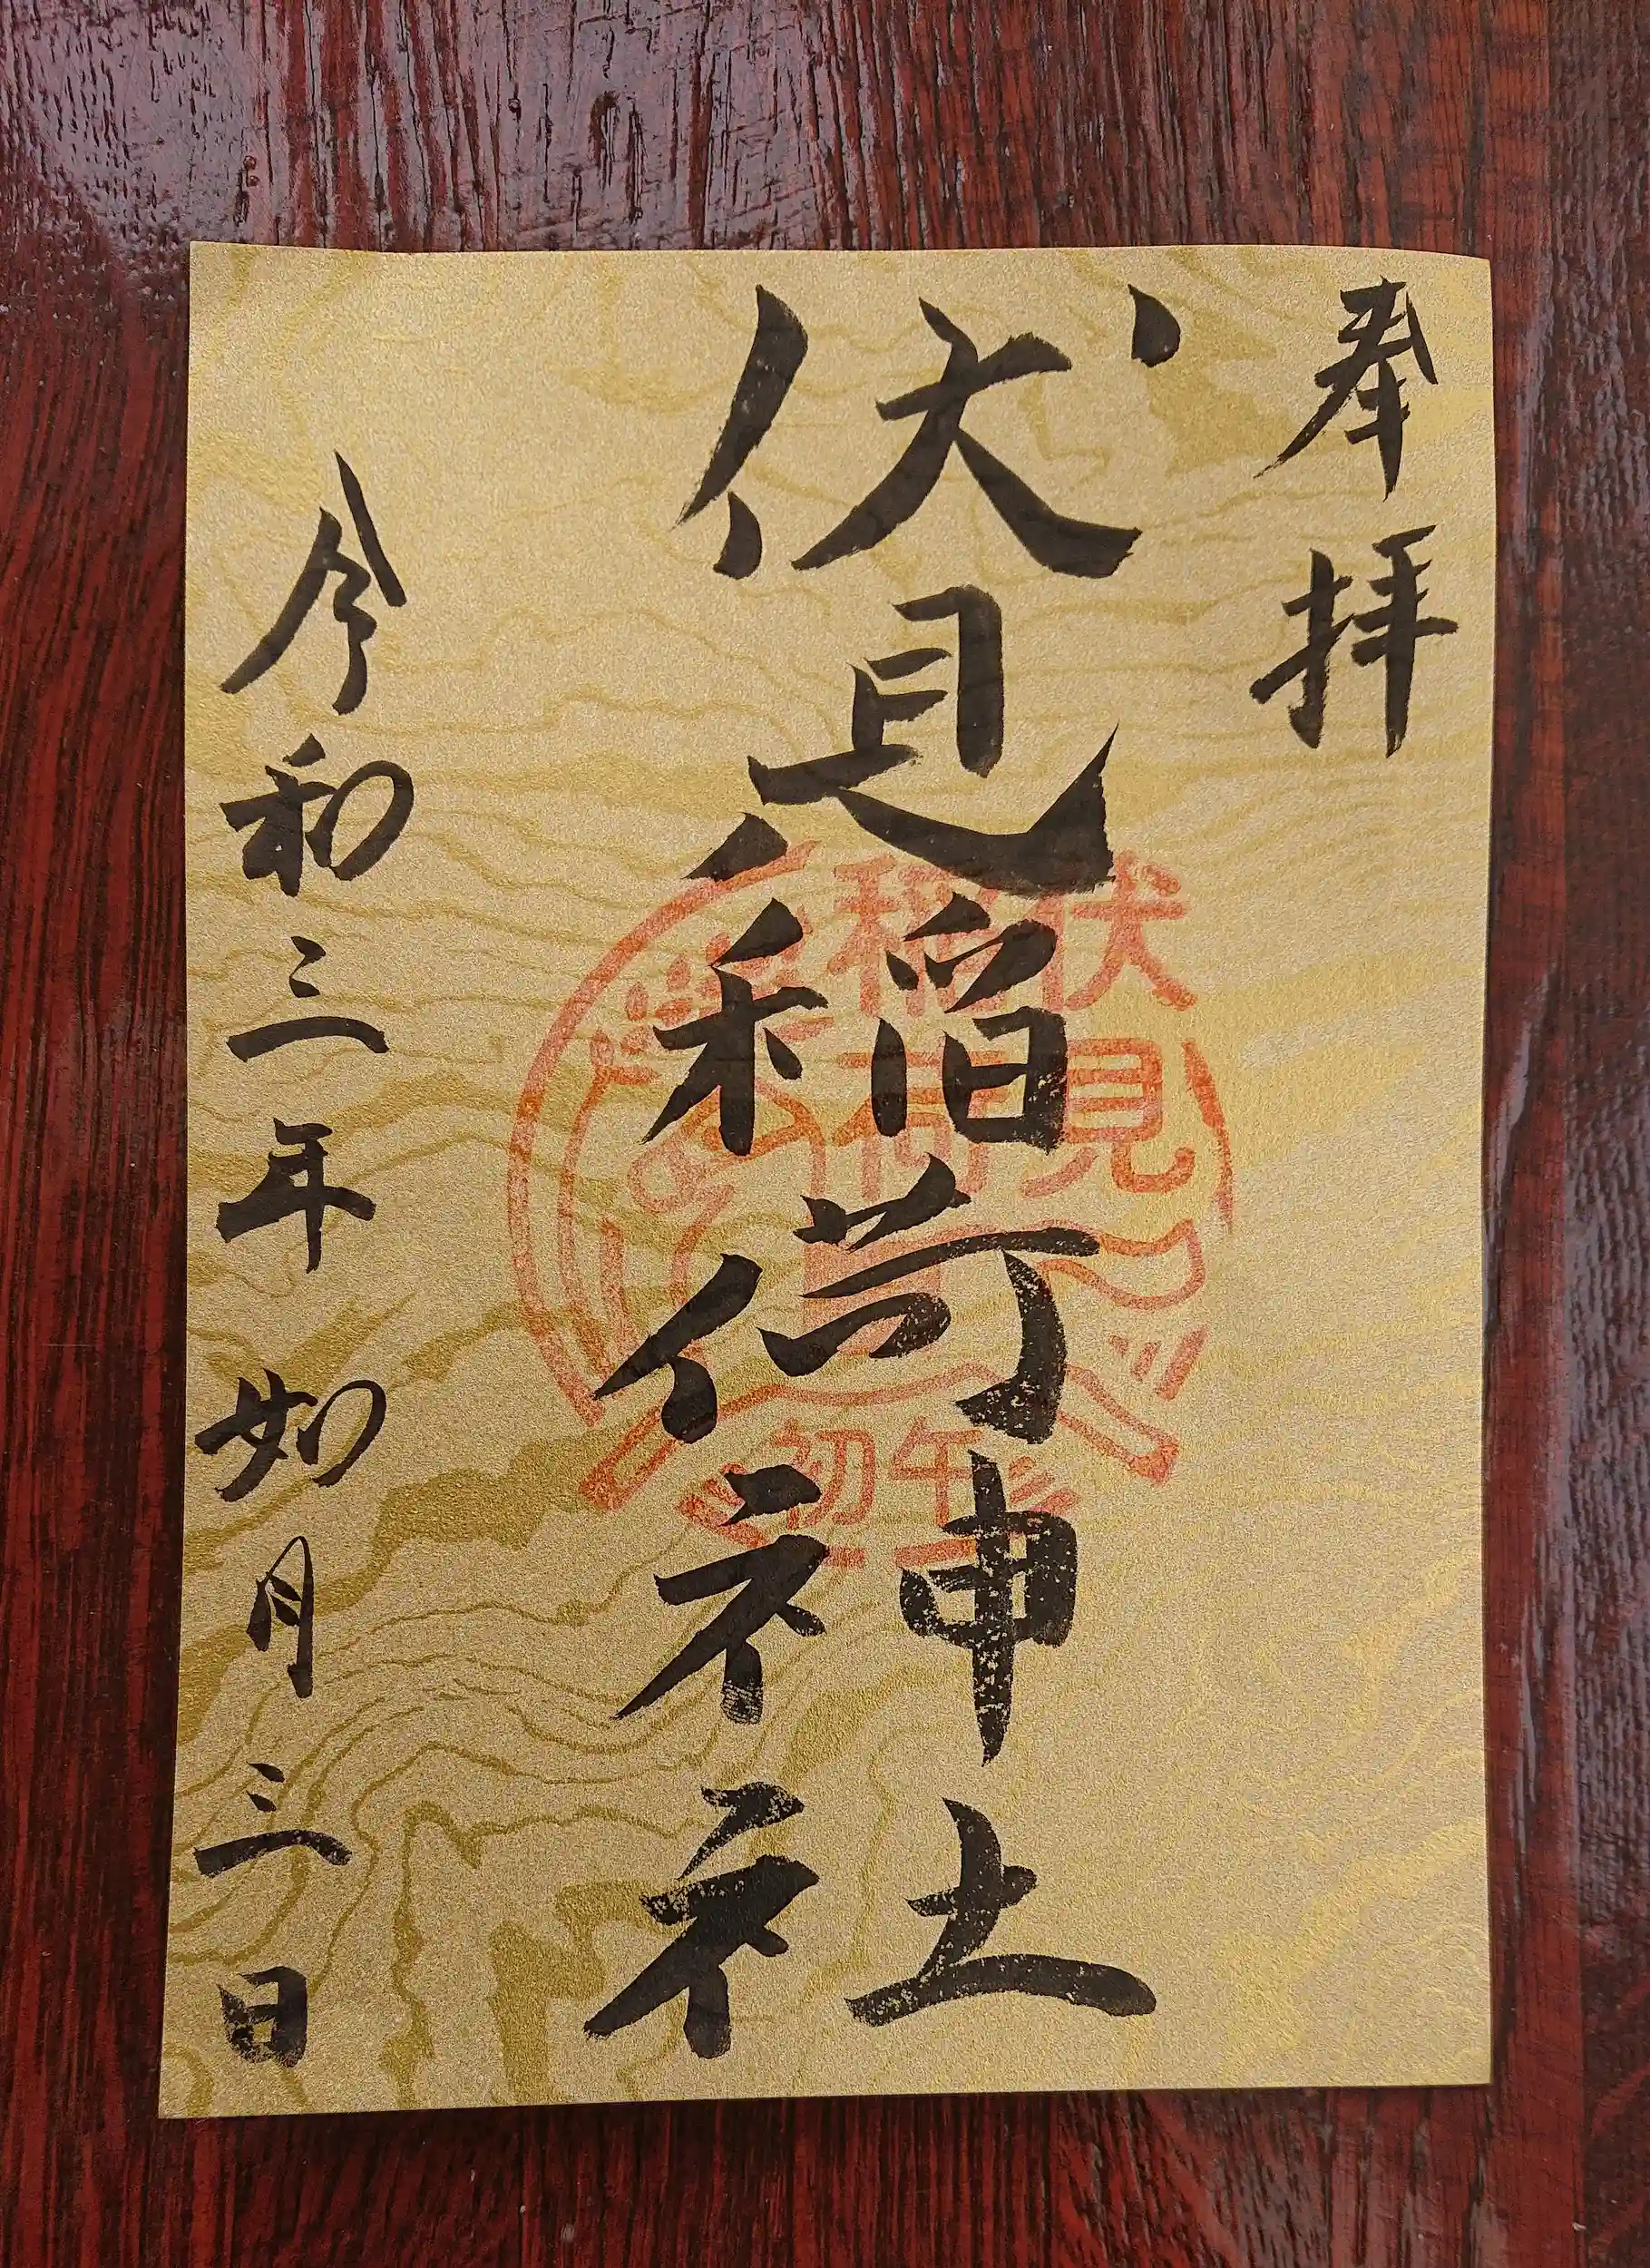 奉拝
伏見稲荷神社
伏見
稲荷
初午
令和三年如月三日